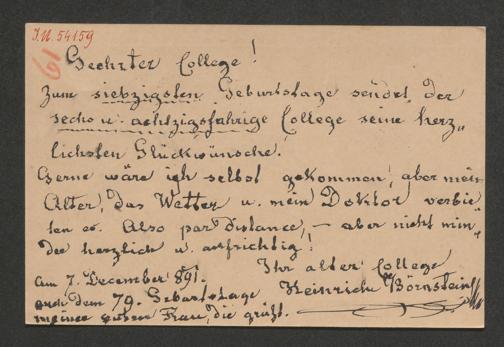 I.N. 54159
61
Geehrter College!
Zum siebzigsten Geburtstage sendet der
sechs u. achtzigsjährige College seine herz„
lichsten Glückwünsche.
Gerne wäre ich selbst gekommen, aber mein
Alter, das Wetter u. mein Doktor verbie„
ten es. Also par Distance, – aber nicht min„
der herzlich u. aufrichtig!
Ihr alter College
Heinrich Börnstein
am 7. December 891.
auch dem 79. Geburtstage
meiner guten Frau, die grüßt.